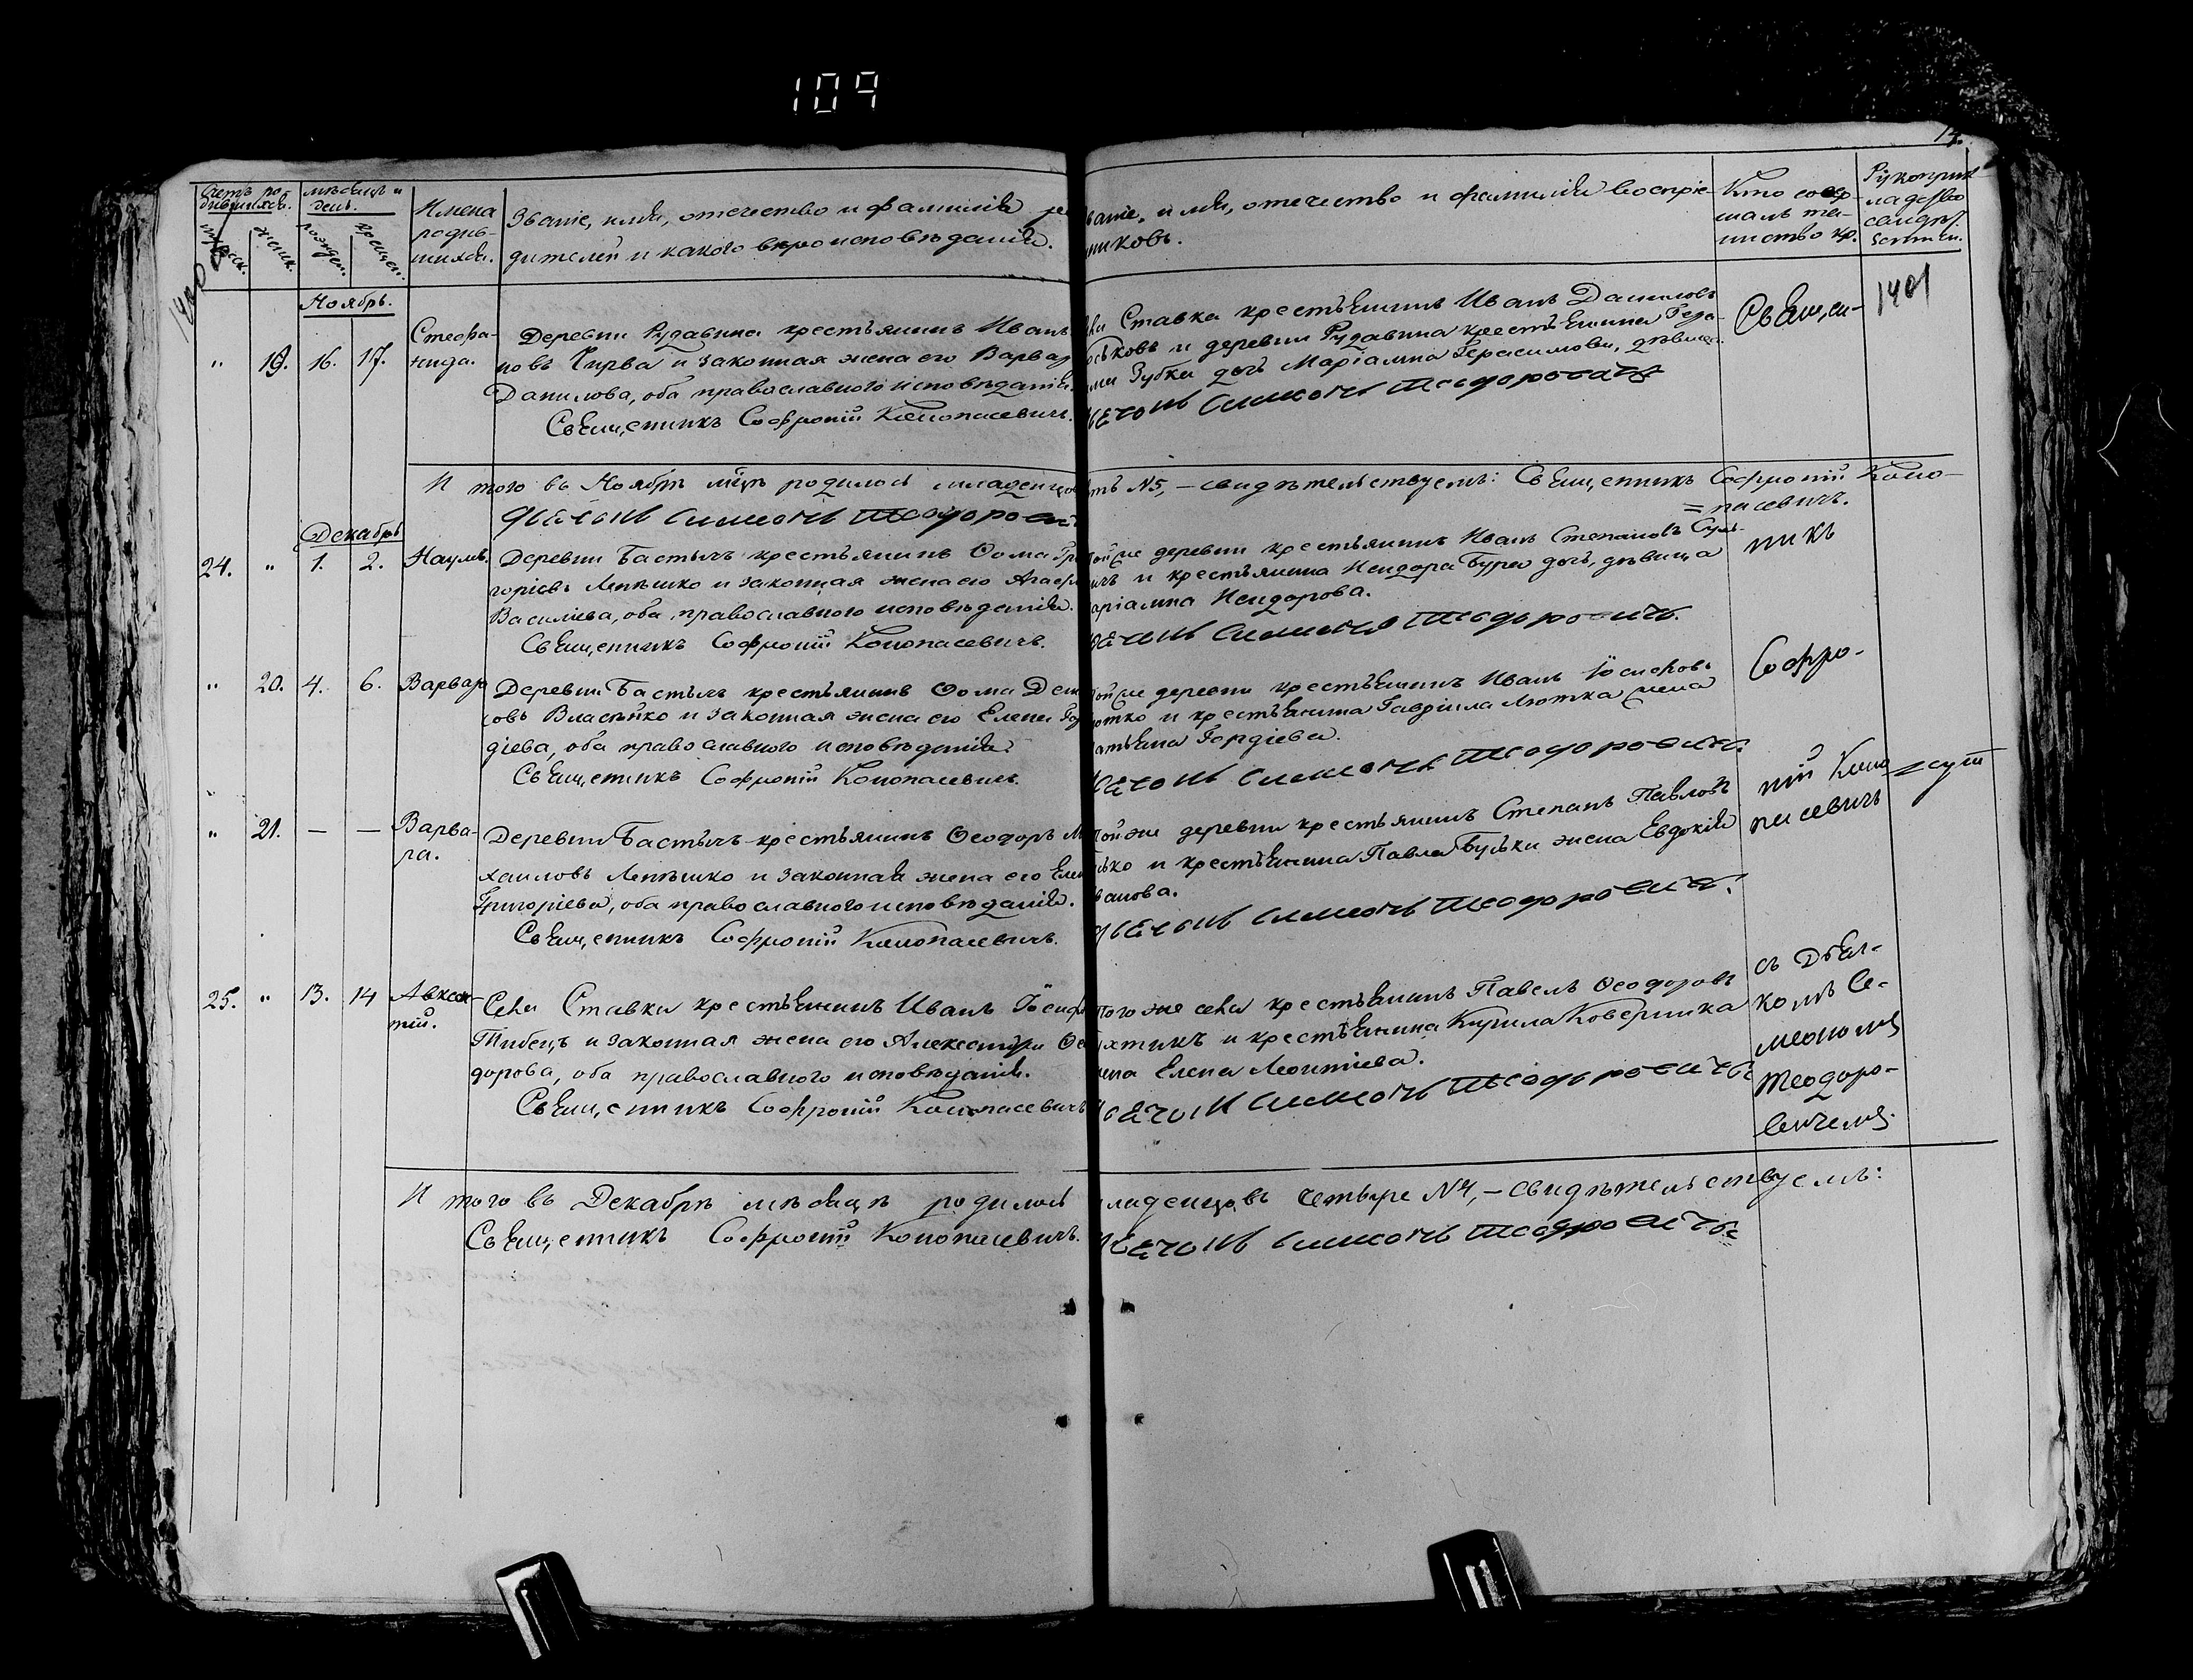 109
14.
Счетъ ро-
дившихся.
мѣсяцъ и
день.
Имена
родив-
шихся.
Званіе, имя, отечество и фамилія
дителей и какого вѣроисповѣданія.
имя, отечество и фамилія воспріе-
никовъ.
Кто совер-
шалъ та-
инство кр.
муж.
женск.
рожден.
крещен.
1401
Ноябрь.
" 19. 16. 17. Стефа-
нида.
Деревни Рудавина крестьянинъ Иванъ
новъ Чирва и законная жена его
Данилова, оба православнаго исповѣданія
Священникъ Софроній Конопасевичъ.
Ставка крестьянинъ Иванъ Даниловъ
и деревни Рудавина крестьянина
Зубки дочь Маріамна Герасимова, дѣвица.
Симеонъ Теодоровичъ
Свящ,ен-
И того въ Ноябрѣ мцѣ родилось
№5, – свидѣтельствуемъ: Священникъ Софроній Коно-
=пасевичъ.
Дьячокъ Симеонъ
Декабрь
24. " 1. 2. Наумъ.
Деревни Бастычъ крестьянинъ Ѳома
горіевъ Лепѣшко и законная жена его
Василіева, оба православнаго исповѣданія.
Священникъ Софроній Конопасевичъ.
деревни крестьянинъ Иванъ Степановъ
и крестьянина Исидора дочь, дѣвица
Исидорова.
Симеонъ Теодоровичъ.
никъ
" 20. 4. 6. Варвара
Деревни Бастычъ крестьянинъ Ѳома
совъ Власѣйко и законная жена его Елена
діева, оба православнаго исповѣданія.
Священникъ Софроній Конопасевичъ.
деревни крестьянинъ Иванъ Іосифовъ
и крестьянина Гавріила Лютка жена
Гордіева.
Симеонъ Теодоровичъ.
Софро-
ній Коно
пасевичъ
" 21. — — Варва-
ра.
Деревни Бастычъ крестьянинъ Ѳеодоръ
хаиловъ Лепѣшко и законная жена его
Григоріева, оба православнаго исповѣданія.
Священникъ Софроній Конопасевичъ.
деревни крестьянинъ Степанъ Павловъ
и крестьянина Павла Буськи жена Евдокія
Дьячокъ Симеонъ Теодоровичъ.
25. " 13. 14 Авксен-
тій.
Села Ставка крестьянинъ Иванъ
Тибецъ и законная жена его Александра
дорова, оба православнаго исповѣданія.
Священникъ Софроній Конопасевичъ
Того же села крестьянинъ Павелъ Ѳеодоровъ
и крестьянина Кирила Коверника
Елена Леонтіева.
Симеонъ Теодоровичъ
съ Дьяч-
комъ Се-
меономъ
Теодоро-
вичемъ.
И того въ Декабрѣ мѣсяцѣ родилось
четыре №4, – свидѣтельствуемъ:
Священникъ Софроній Конопасевичъ.
Симеонъ Теодоровичъ